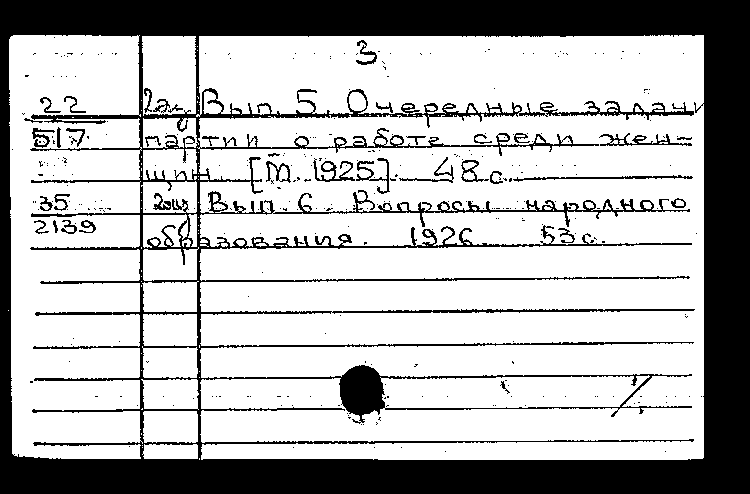 3
22 2экз Вып. 5. Очередные задачи
517 партии о работе среди жен-
щин. [М. 1925]. 48 с.
35 2экз Вып. 6. Вопросы народного
2139 образования. 1926. 53 с.